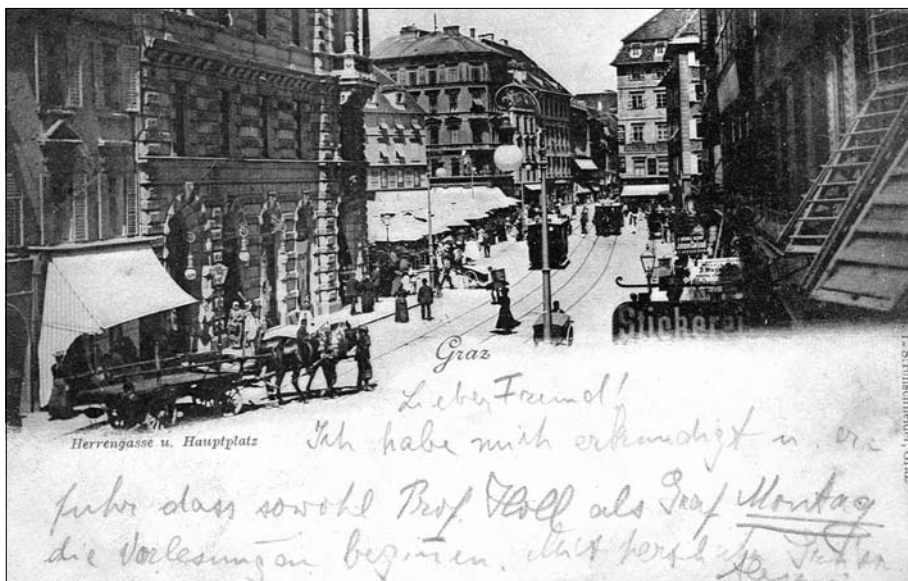 Stickerei
Graz
Herrengasse u. Hauptplatz
Lieber Freund!
Ich habe mich erkundigt u. er-
fuhr dass sowohl Prof. Holl als Graf Montag
die Vorlesungen beginnen. Mit